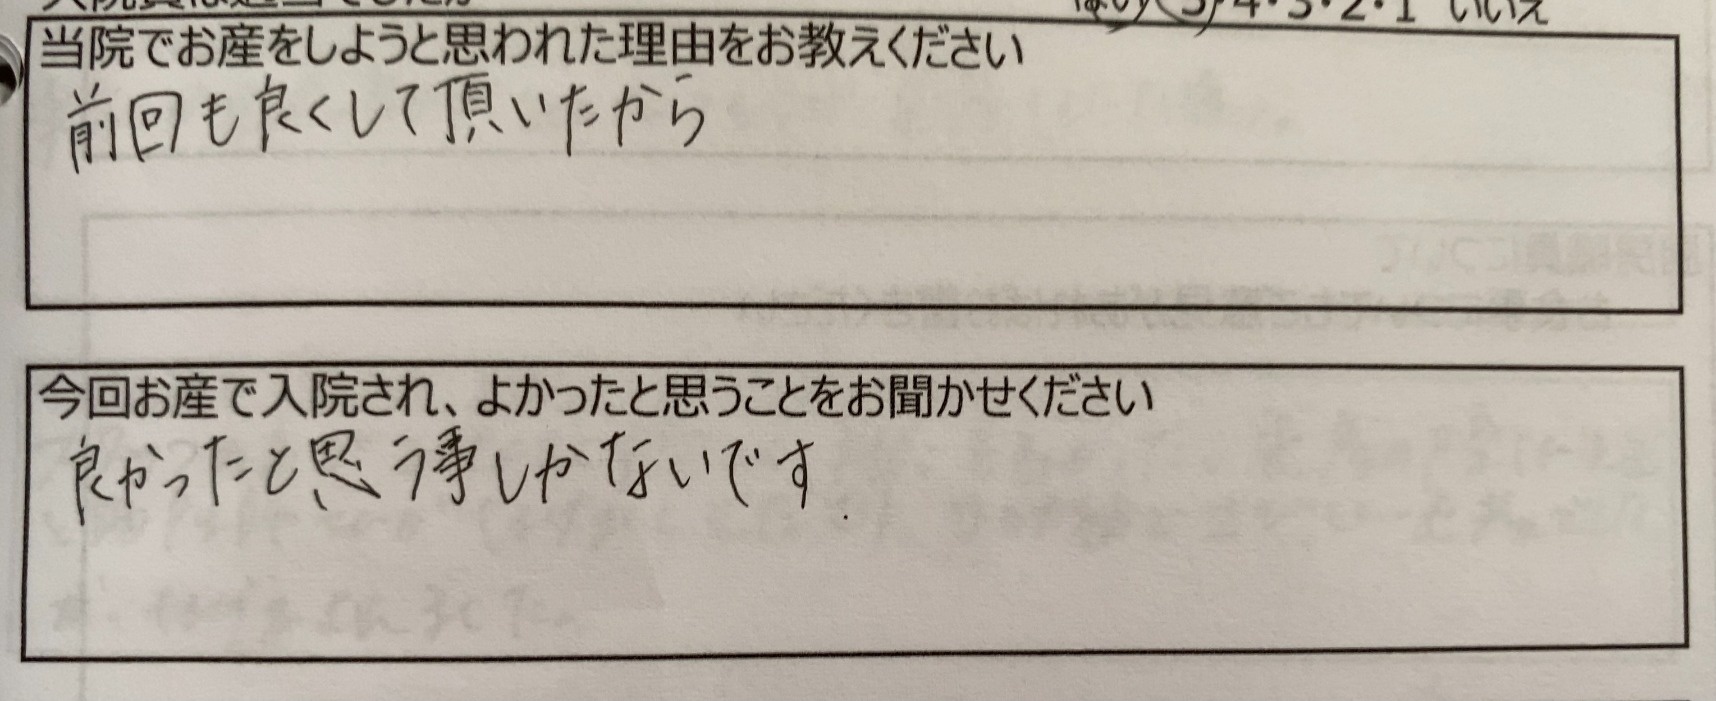 はい 5・4・3・2・1 いいえ
当院でお産をしようと思われた理由をお教えください
前回も良くして頂いたから
今回お産で入院され、よかったと思うことをお聞かせください
良かったと思う事しかないです.